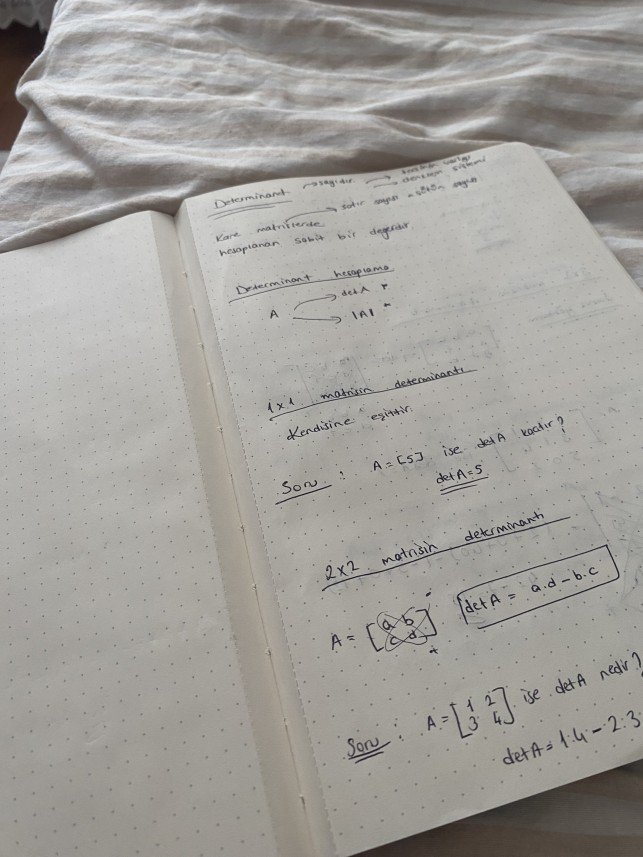 Determinant → sayıdır. → tersinin varlığı
→ denklem sistemi
Kare matrislerde → satır sayısı = sütun sayısı
hesaplanan sabit bir değerdir.
Determinant hesaplama
A → det A *
→ |A| *
1x1 matrisin determinantı
Kendisine eşittir.
Soru : A = [5] ise det A kaçtır?
det A = 5
2x2 matrisin determinantı
A = [a b -
c d] +
det A = a.d - b.c
Soru : A = [1 2
3 4] ise det A nedir?
det A = 1.4 - 2.3